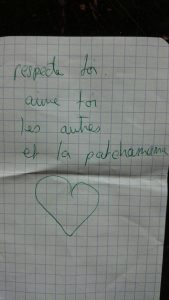 respecte toi.
aime toi
les autres
et la patchamama